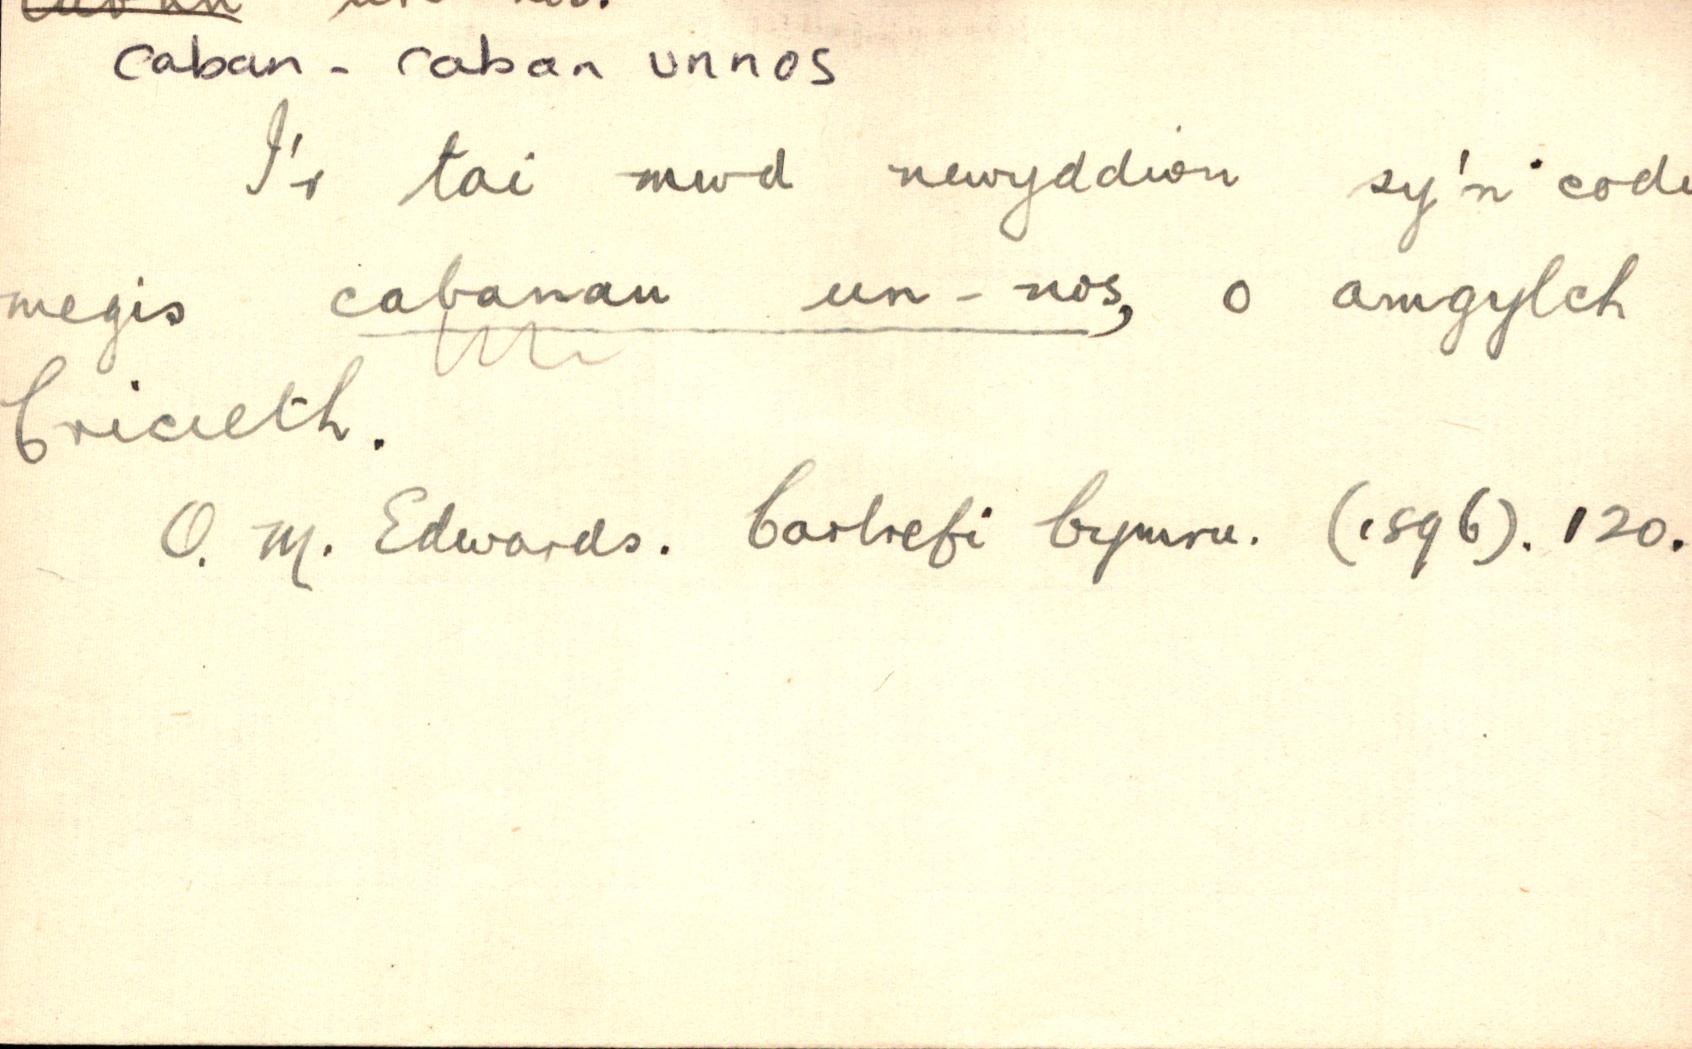 caban un nos.
caban - caban unnos
I'r tai mwd newyddion sy'n codi
megis cabanau un-nos, o amgylch
Cricieth.
O. M. Edwards. Cartrefi Cymru. (1896). 120.